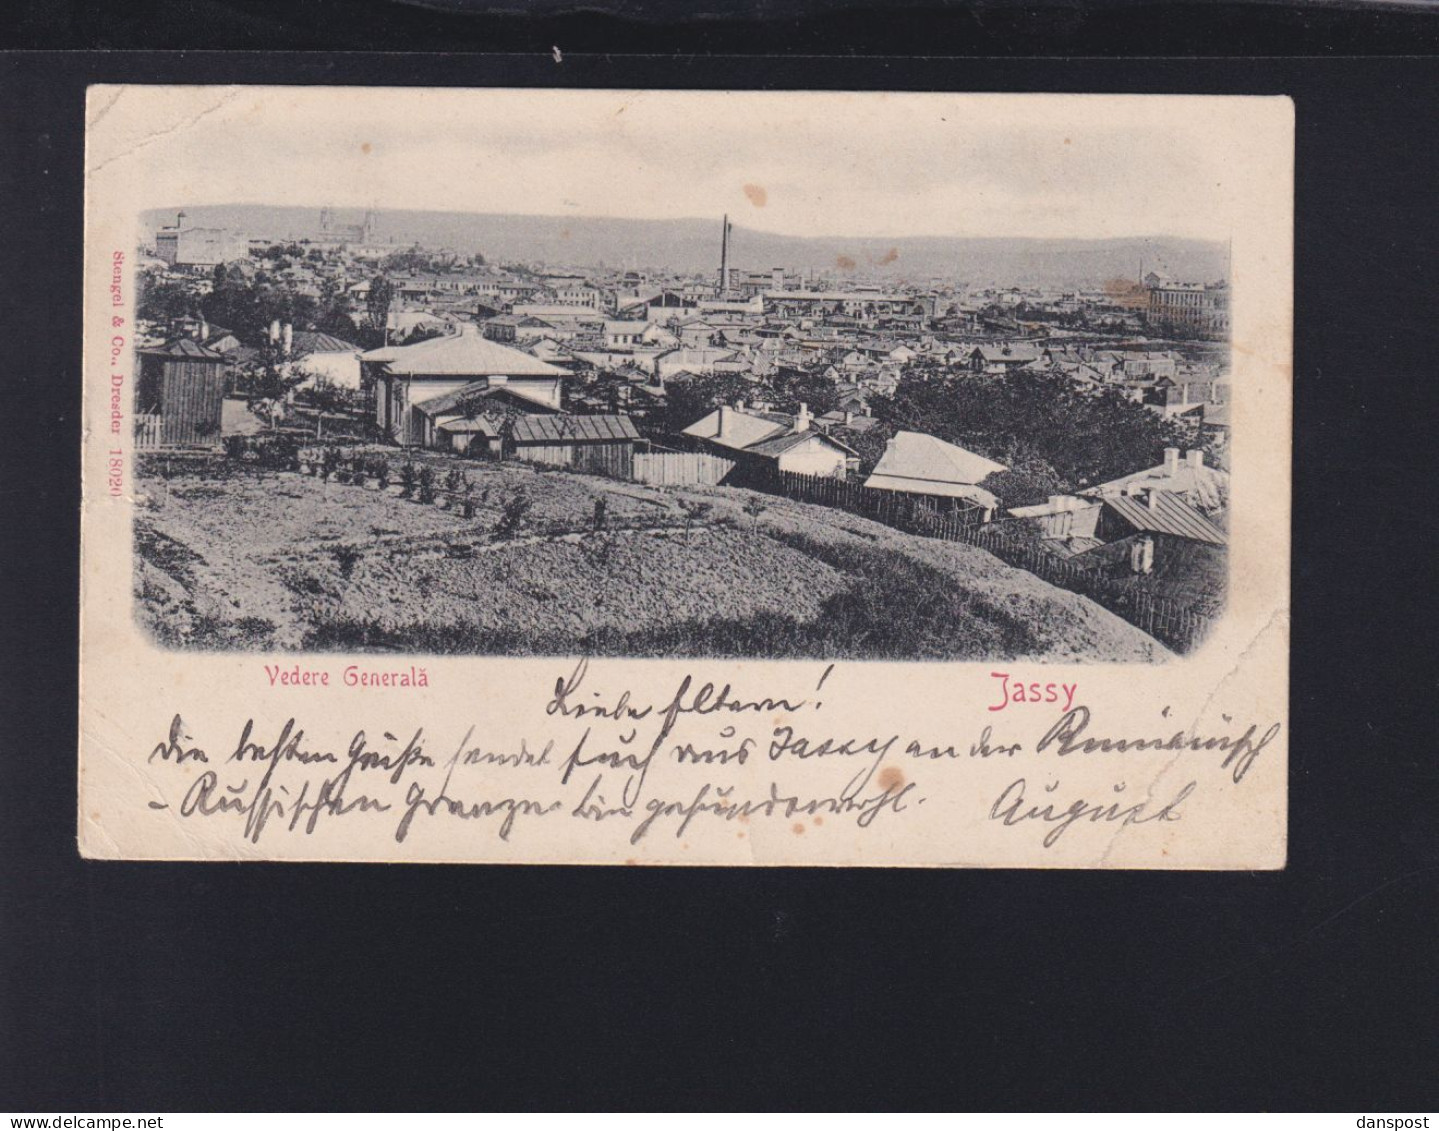 Stengel & Co., Dresden 18020
Vedere Generală
Jassy
Liebe Eltern!
Die besten Grüße sendet Euch aus Jassy an der Rumänisch
- Russischen Grenze bin gesund u. wohl. August
danspost